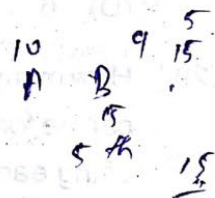 5
10 9 15
A B .
15
5 th
15